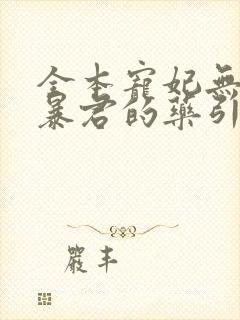 全本寵妃無
暴君的藥引
嚴丰